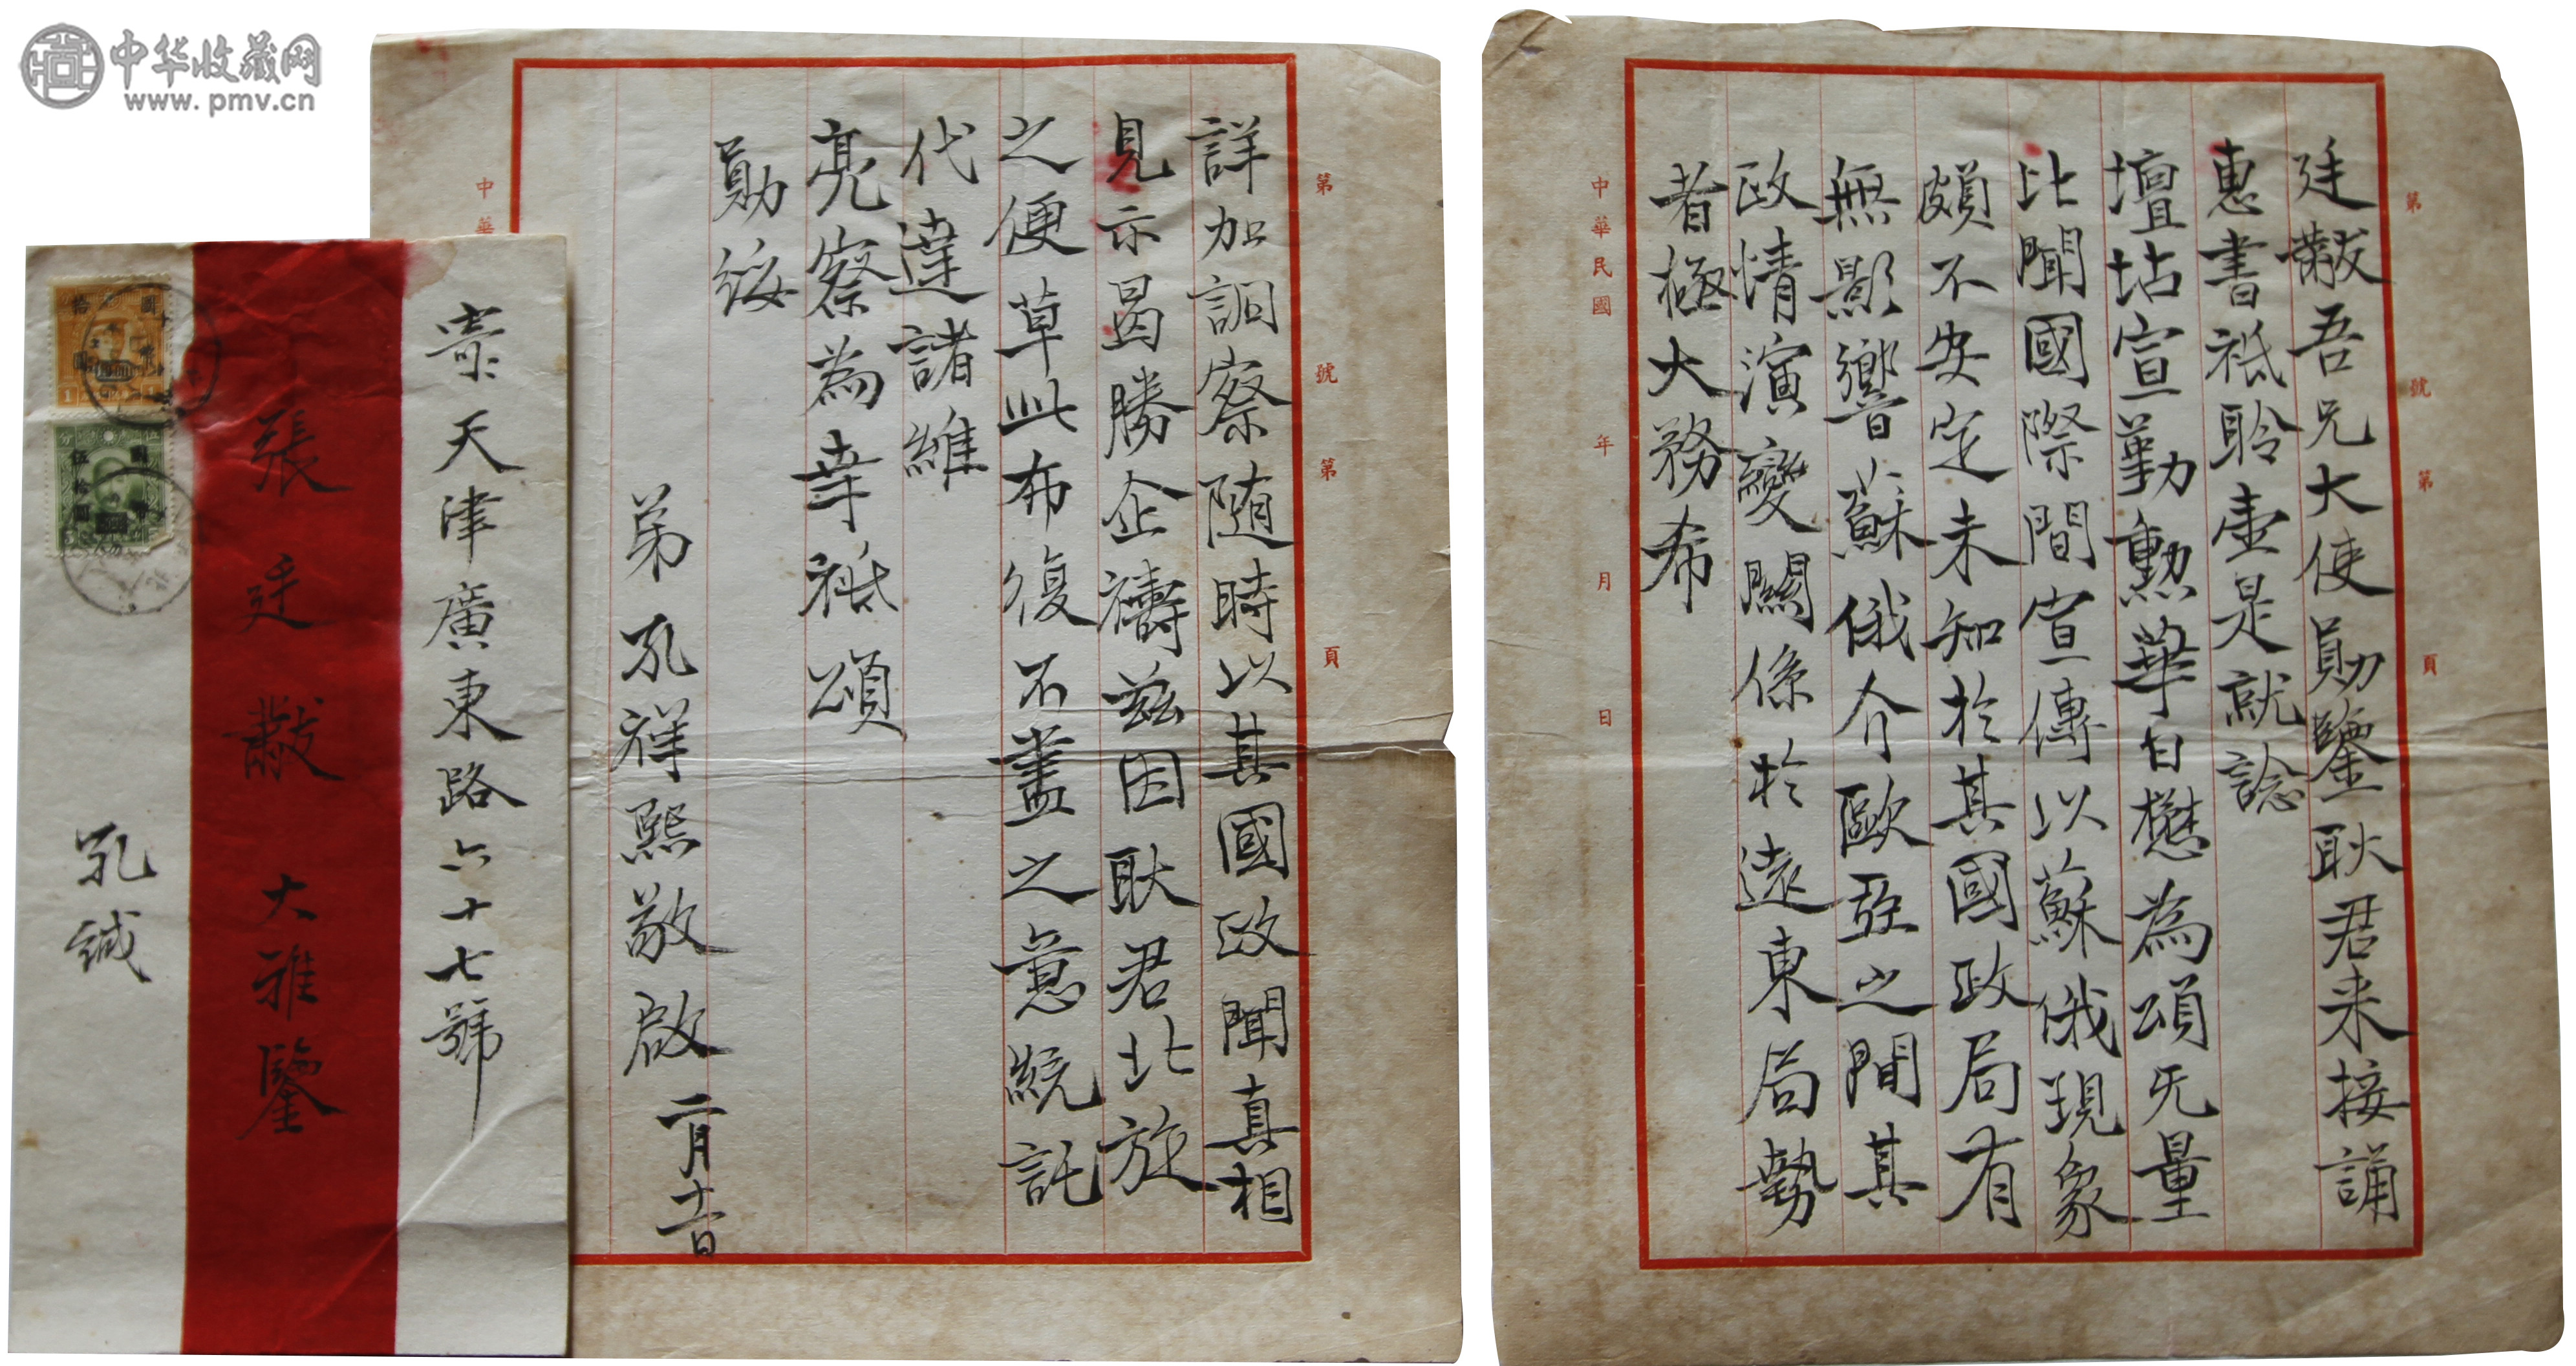 中华收藏网
www.pmv.cn
第 號 第 頁
廷黻吾兄大使勛鑒耿君来接誦
惠書祗聆壹是就諗
壇坫宣勤勲華日懋為頌无量
比聞國際間宣傳以蘇俄現象
頗不安定未知於其國政局有
無影響蘇俄介歐亞之間其
政情演變關係於遠東局勢
者極大務希
中華民國 年 月 日
第 號 第 頁
詳加詗察随時以其國政聞真相
見示曷勝企禱茲因耿君北旋
之便草此布復不盡之意統託
代達諸維
亮察為幸祗頌
勛綏
弟孔祥熙敬啟 二月十一日
中華
寄天津廣東路六十七號
張廷黻 大雅鑒
孔緘